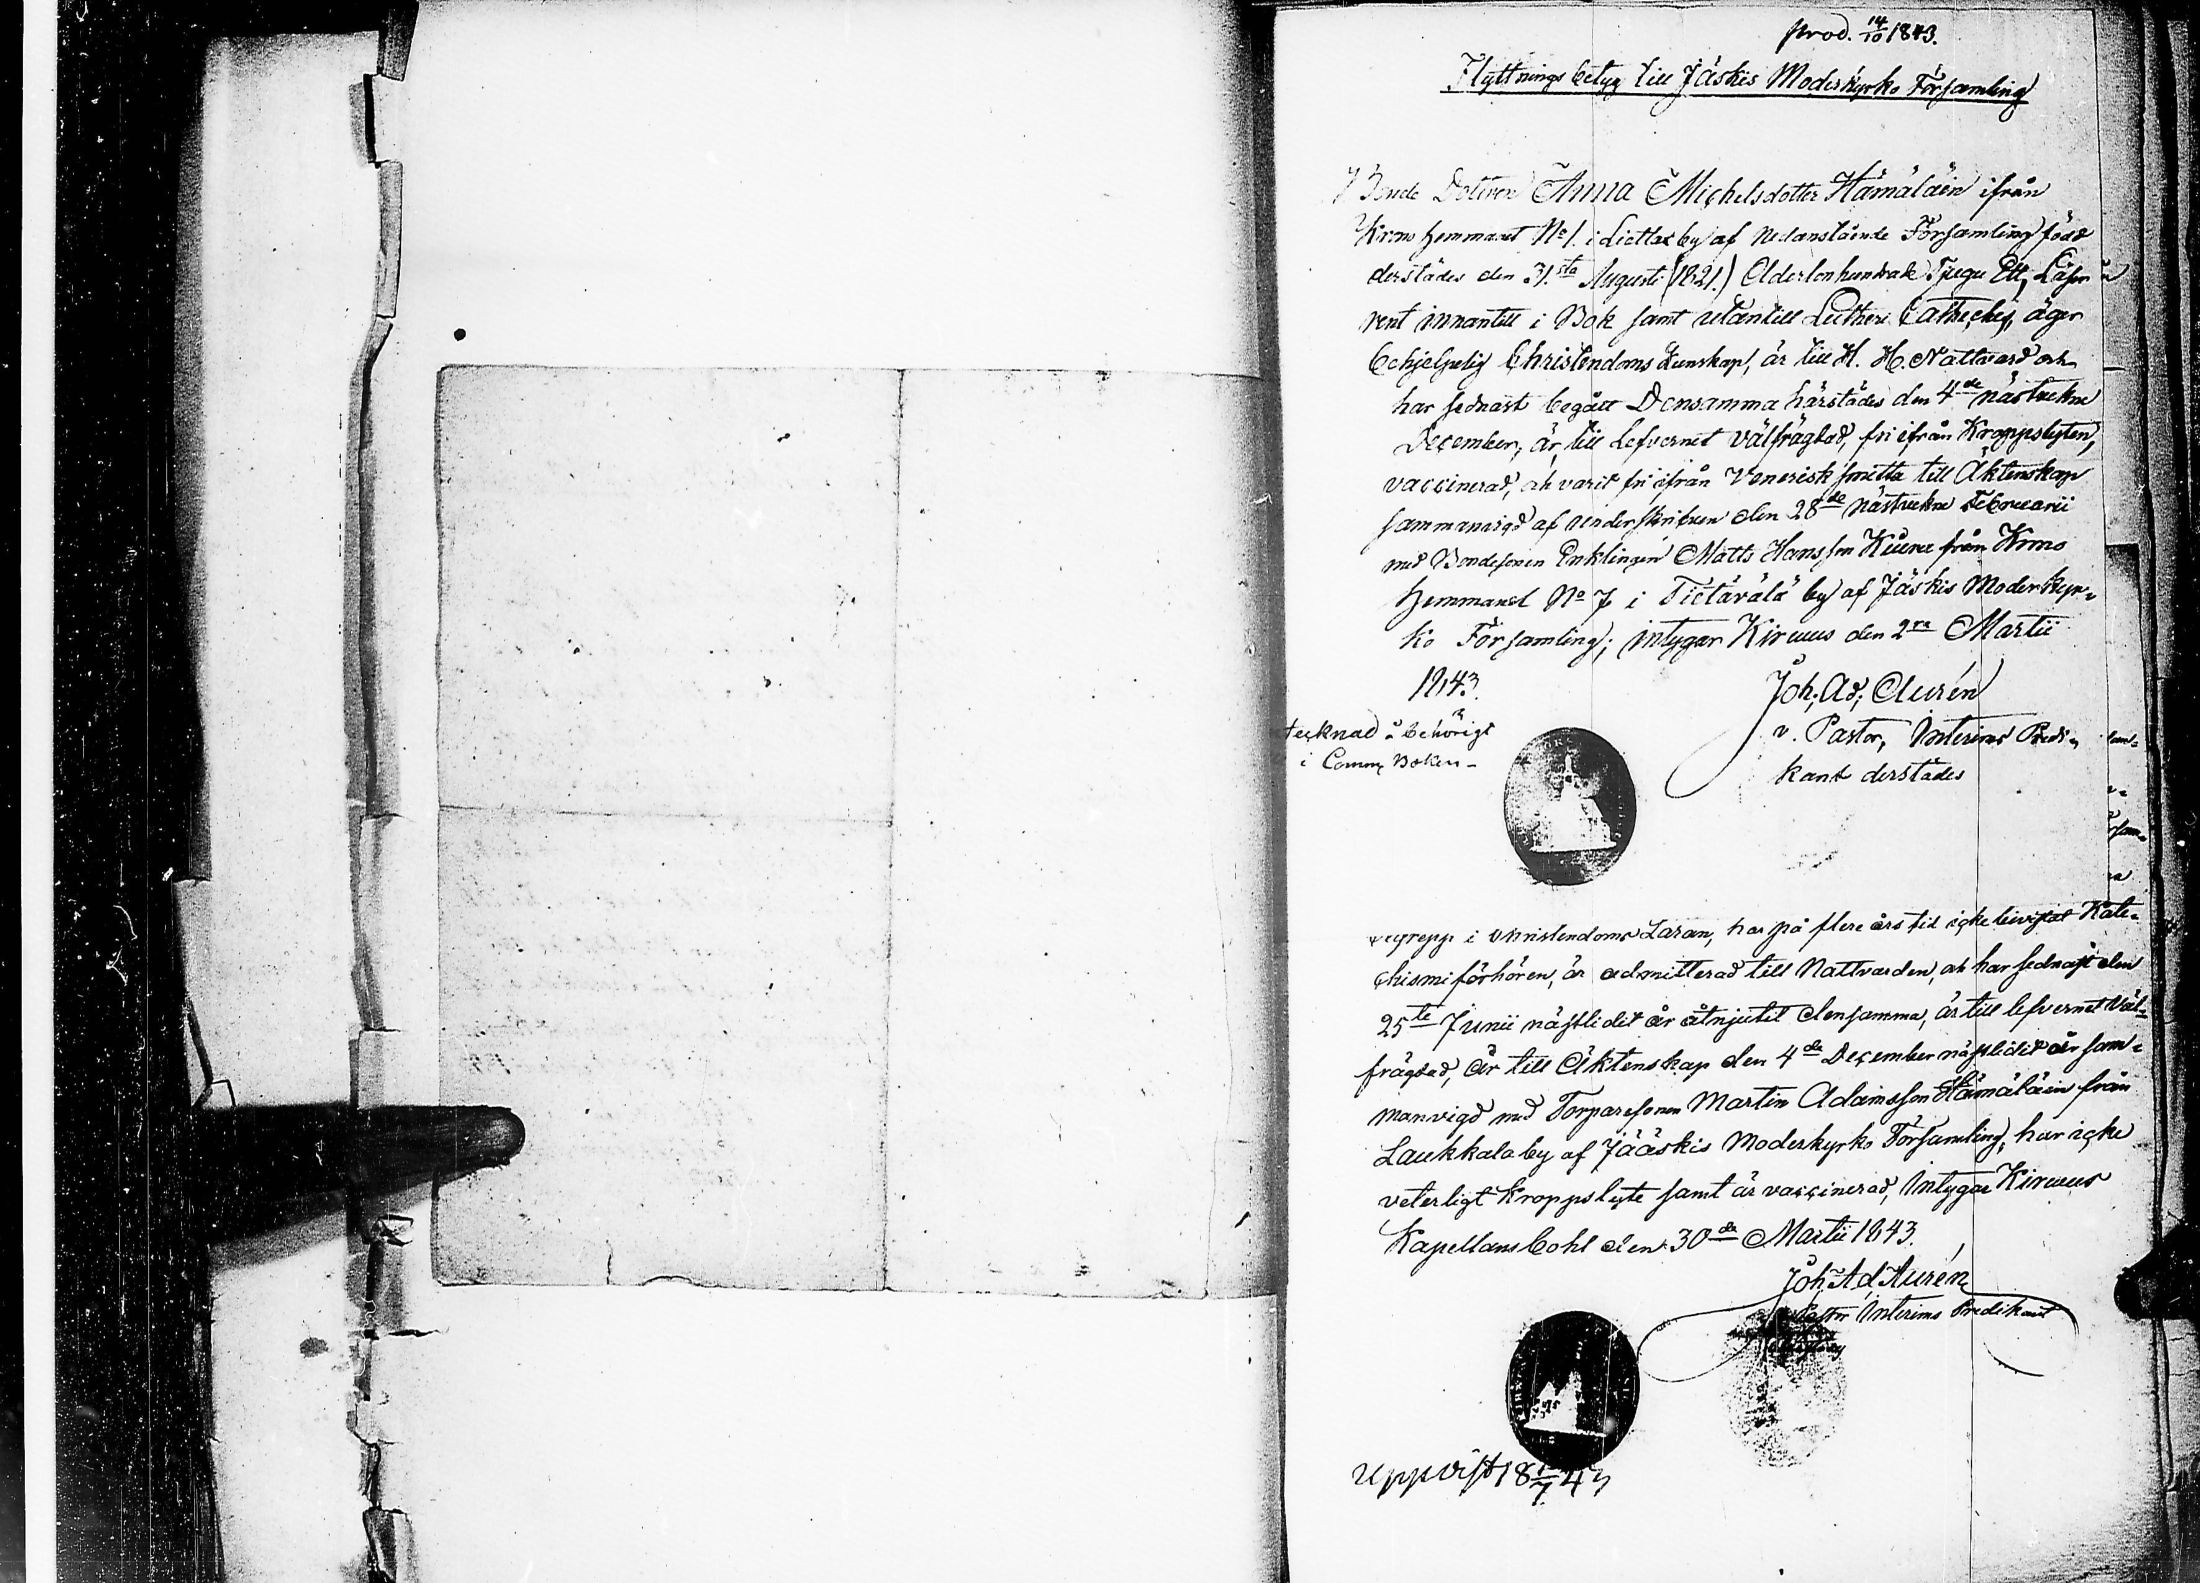 prod. 14/10 1843.
Flyttnings betyg till Jäskis Moderkyrko Församling
Bonde Dottren Anna Michelsdotter Hämäläin ifrån
Krono hemmanet No 1. i by af Nedanstående Församling född
derstädes den 31.sta Augusti (1821.) Adertonhundrade Tjugu Ett, Läser
rent innantill i Bok samt utantill Lutheri Catheches, äger
behjelpelig Christendoms Kunskap, är till H. H. Nattvard och
har sednast begått Densamma härstädes den 4de nästvekne
December, är till Lefvernet välfrägdad, fri ifrån Kroppslyten,
vaccinerad, och varit fri ifrån Venerisk smitta till Äktenskap
sammanvigd af underskrifven den 28de nästvekne Februarii
med Bondesonen Enklingen Matts Hansson från Krono
Hemmanet No 7 i Tietävälä by af Jäskis Moderkyr=
ko Församling; intygar Kirwus den 2ra Martii
1843.
Joh. Ad. Aurén
v. Pastor, Interims Predi=
kant derstädes
tecknad å behörigt
i Comm. Boken -
begrepp i Christendoms Läran, har på flere års tid icke bevistat Kate=
chismi förhören, är admitterad till Nattvarden, och har sednast den
25te Junii nästlidit år åtnjutit densamma, är till lefvernet Väl=
frägdad, är till Äktenskap den 4de December nästlidit år sam=
manvigd med Torparesonen Martin Adamsson Hämäläin från
Laukkala by af Jääskis Moderkyrko Församling, har icke
veterligt kroppslyte samt är vaccinerad, Intygar Kirwus
Kapellans bohl den 30de Martii 1843.
Joh. Ad Aurén
v Pastor Interims Predikant
Uppvist 18 1/7 43